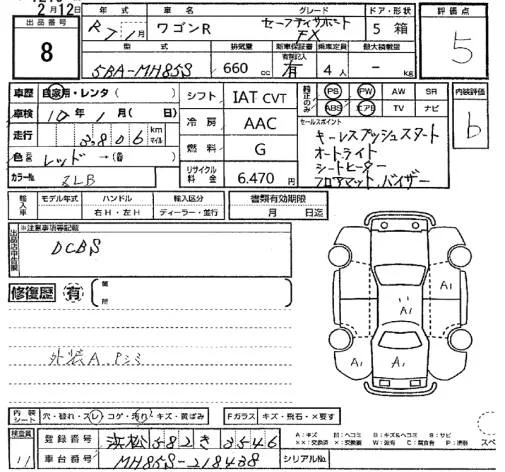 2月12日
出品番号
8
年式 車名 グレード ドア・形状 評価点
R7/1月 ワゴンR セーフティサポート FX 5 箱 5
型式 排気量 新車保証書 乗車定員 最大積載量
有無記入
5BA-MH85S 660 cc 有 4人 - kg
車歴 自家用・レンタ( )
車検 10年 1月( 日)
走行 3,806 km マイル
色 レッド→( )
カラーNo ZLB
シフト IAT CVT
冷房 AAC
燃料 G
リサイクル料金 6.470円
純正のみ PS PW AW SR
ABS エアB TV ナビ
内装評価
b
セールスポイント
キーレスプッシュスタート
オートライト
シートヒーター
フロアマット、バイザー
輸入車 モデル年式 ハンドル 輸入区分
右H・左H ディーラー・並行
書類有効期限
月 日迄
※注意事項等記載
DCBS
修復歴 有 ( 箇所 )
外装A
A1
A1
A1
A1
内装シート 穴・破れ・スレ コゲ・汚れ キズ・黄ばみ Fガラス キズ・飛石・×要す
検査員
11
登録番号 浜松 582 き 3546
車台番号 MH85S-218438 シリアルNo.
A:キズ